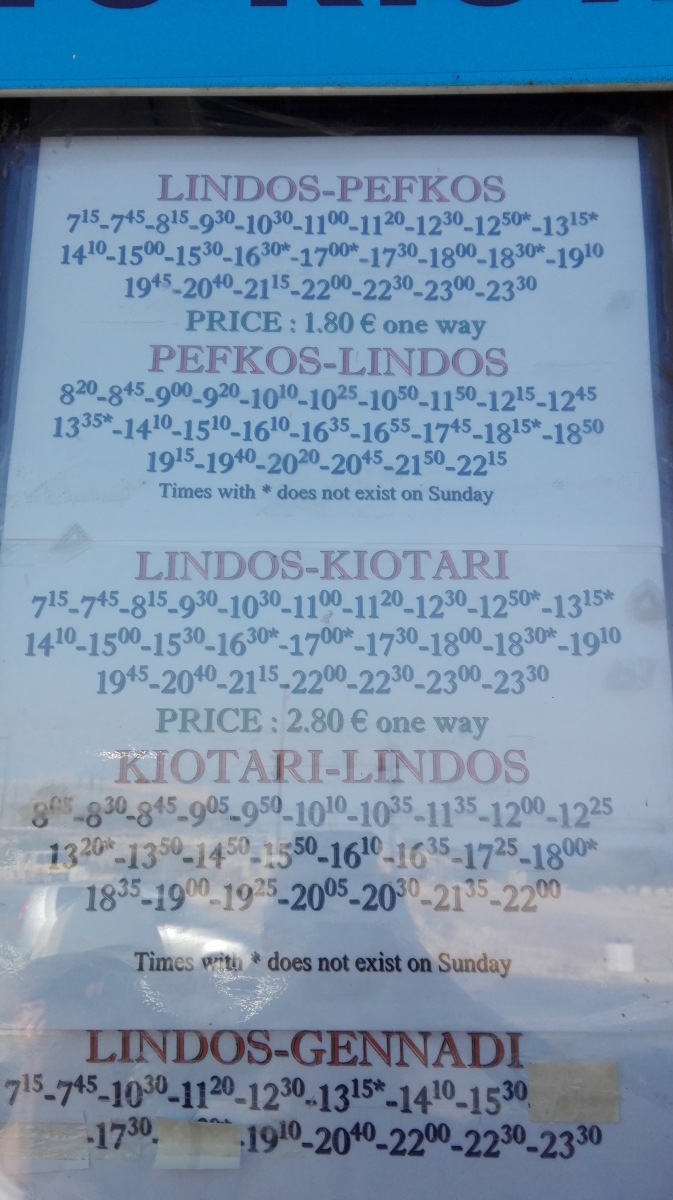 LINDOS-PEFKOS
7¹⁵-7⁴⁵-8¹⁵-9³⁰-10³⁰-11⁰⁰-11²⁰-12³⁰-12⁵⁰*-13¹⁵*
14¹⁰-15⁰⁰-15³⁰-16³⁰*-17⁰⁰*-17³⁰-18⁰⁰-18³⁰*-19¹⁰
19⁴⁵-20⁴⁰-21¹⁵-22⁰⁰-22³⁰-23⁰⁰-23³⁰
PRICE : 1.80 € one way
PEFKOS-LINDOS
8²⁰-8⁴⁵-9⁰⁰-9²⁰-10¹⁰-10²⁵-10⁵⁰-11⁵⁰-12¹⁵-12⁴⁵
13³⁵*-14¹⁰-15¹⁰-16¹⁰-16³⁵-16⁵⁵-17⁴⁵-18¹⁵*-18⁵⁰
19¹⁵-19⁴⁰-20²⁰-20⁴⁵-21⁵⁰-22¹⁵
Times with * does not exist on Sunday
LINDOS-KIOTARI
7¹⁵-7⁴⁵-8¹⁵-9³⁰-10³⁰-11⁰⁰-11²⁰-12³⁰-12⁵⁰*-13¹⁵*
14¹⁰-15⁰⁰-15³⁰-16³⁰*-17⁰⁰*-17³⁰-18⁰⁰-18³⁰*-19¹⁰
19⁴⁵-20⁴⁰-21¹⁵-22⁰⁰-22³⁰-23⁰⁰-23³⁰
PRICE : 2.80 € one way
KIOTARI-LINDOS
8⁰⁵-8³⁰-8⁴⁵-9⁰⁵-9⁵⁰-10¹⁰-10³⁵-11³⁵-12⁰⁰-12²⁵
13²⁰*-13⁵⁰-14⁵⁰-15⁵⁰-16¹⁰-16³⁵-17²⁵-18⁰⁰*
18³⁵-19⁰⁰-19²⁵-20⁰⁵-20³⁰-21³⁵-22⁰⁰
Times with * does not exist on Sunday
LINDOS-GENNADI
7¹⁵-7⁴⁵-10³⁰-11²⁰-12³⁰-13¹⁵*-14¹⁰-15³⁰
-17³⁰- -19¹⁰-20⁴⁰-22⁰⁰-22³⁰-23³⁰